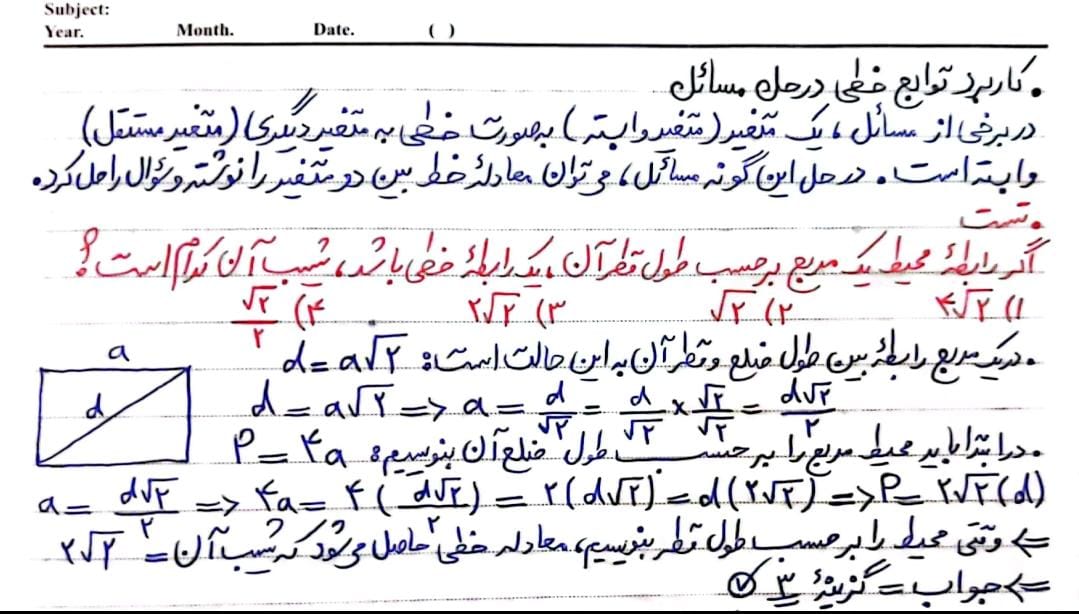 Subject:
Year. Month. Date. ( )
. کاربرد توابع خطی در حل مسائل
در برخی از مسائل، یک متغیر (متغیر وابسته) به صورت خطی به متغیر دیگری (متغیر مستقل)
وابسته است. در حل این گونه مسائل، می توان معادلهٔ خط بین دو متغیر را نوشته و سؤال را حل کرد.
. تست
اگر رابطهٔ محیط یک مربع برحسب طول قطر آن، یک رابطهٔ خطی باشد، شیب آن کدام است؟
۱) ۴√۲ ۲) √۲ ۳) ۲√۲ ۴) √۲/۲
a
. در یک مربع رابطهٔ بین طول ضلع و قطر آن به این حالت است: d = a√۲
d
d = a√۲ => a = d/√۲ = d/√۲ × √۲/√۲ = d√۲/۲
. در ابتدا باید محیط مربع را بر حسب طول ضلع آن بنویسیم: P = ۴a
a = d√۲/۲ => ۴a = ۴(d√۲/۲) = ۲(d√۲) = d(۲√۲) => P = ۲√۲(d)
<= وقتی محیط را برحسب طول قطر بنویسیم، معادله خطی حاصل می شود که شیب آن = ۲√۲
<= جواب = گزینهٔ ۳ ✓